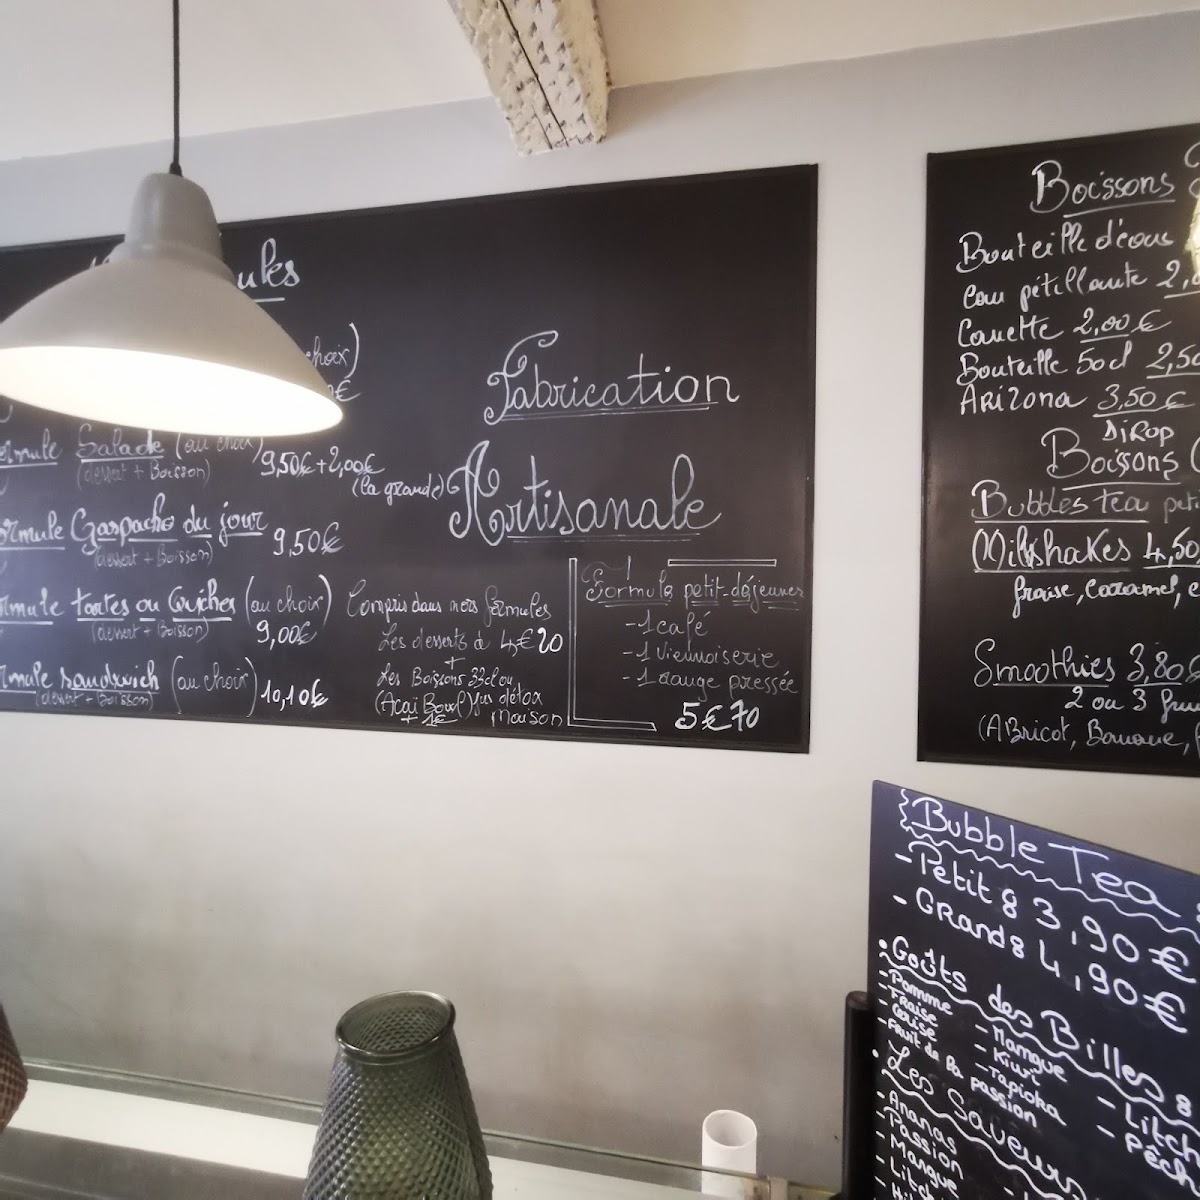 ules
choix)
€
Salade (au choix)
(dessert + Boisson)
9,50€ + 2,00€
(la grande)
Gaspacho du jour
(dessert + Boisson)
9,50€
tartes ou Quiches (au choix)
(dessert + Boisson)
9,00€
sandwich (au choix)
(dessert + Boisson)
10,10€
Fabrication
Artisanale
Compris dans nos formules
Les desserts à 4€20
+
Les Boissons 33cl ou
(Acaï Bowl) Jus détox
+ 1€ maison
Formule petit-déjeuner
-1 café
-1 Viennoiserie
-1 orange pressée
5€70
Boissons
Bouteille d'eau
eau pétillante 2,
Canette 2,00€
Bouteille 50cl 2,50
ARIZONA 3,50€
SIROP
Boissons (
Bubbles tea
Milkshakes 4,50
fraise, caramel,
Smoothies 3,80€
2 ou 3
(ABricot, Banane,
Bubble Tea
- Petit : 3,90€
- GRand : 4,90€
• Goûts des Billes :
- Pomme
- Fraise
- Cerise
- FRUIT de la passion
- Mangue
- Kiwi
- Tapioka
- Litch
- Pêch
• Les Saveurs
- Ananas
- Passion
- Mangue